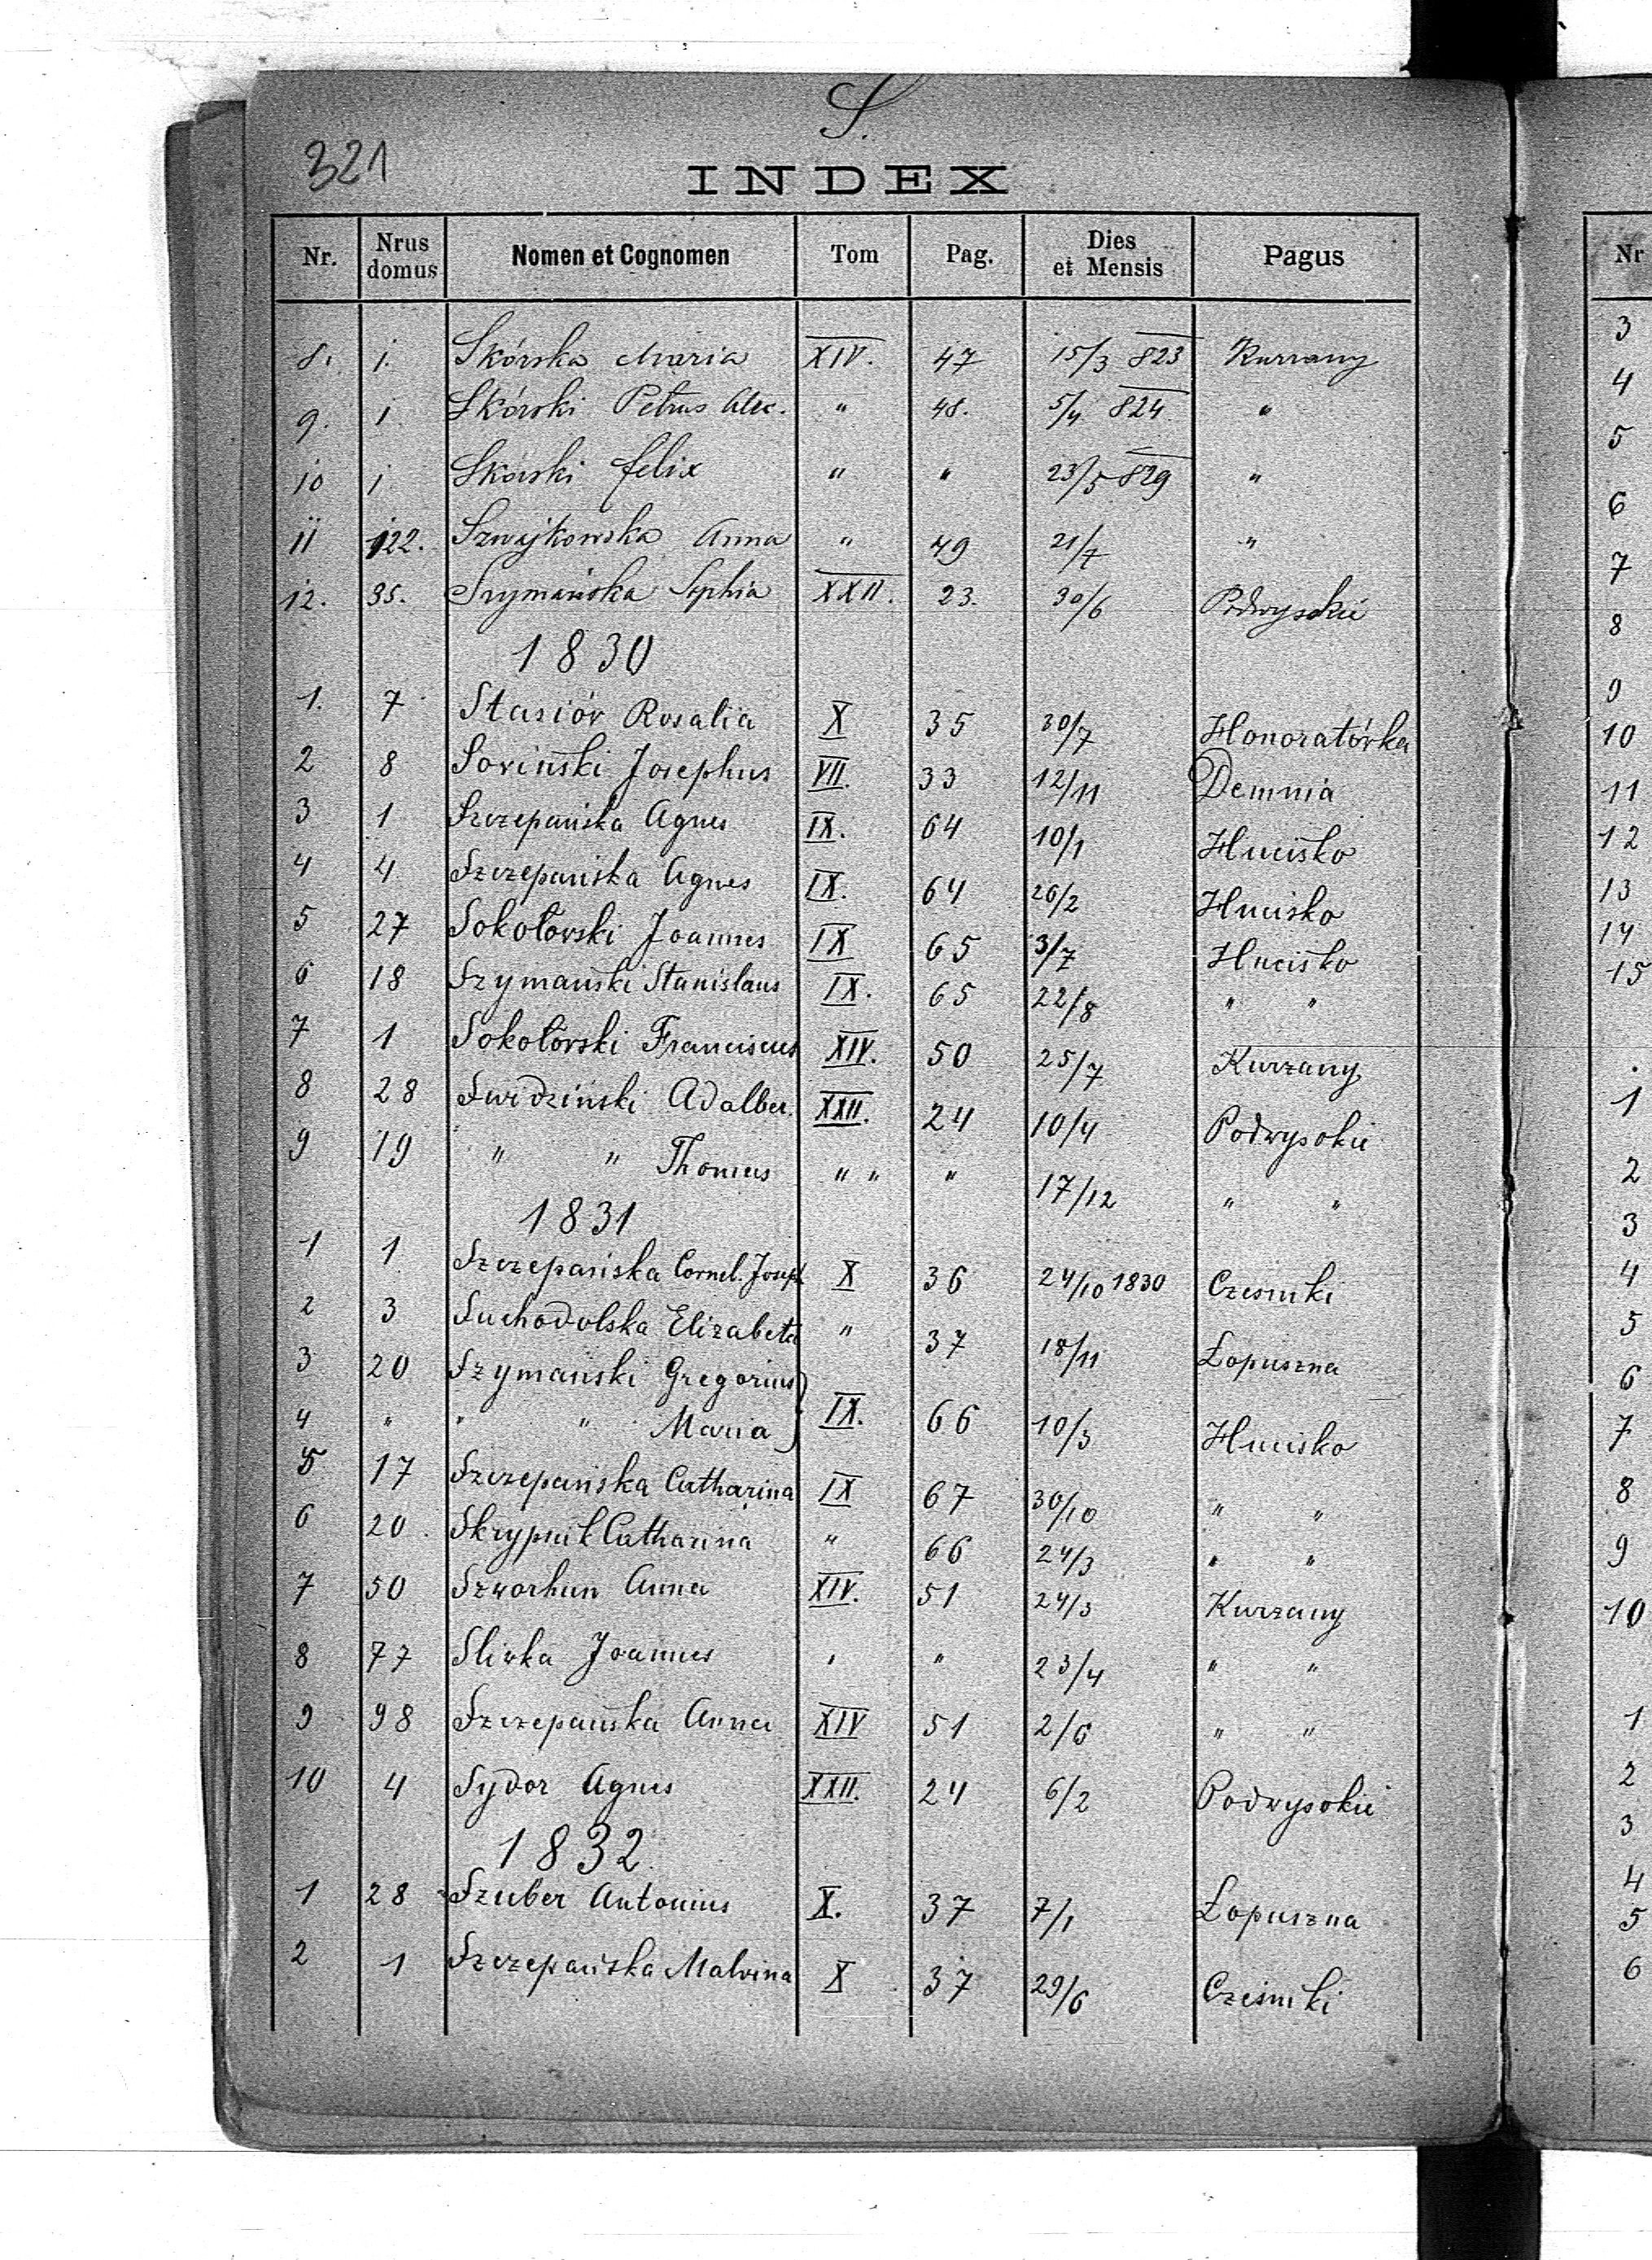 S.
321
INDEX
Nr. Nrus domus Nomen et Cognomen Tom Pag. Dies et Mensis Pagus
8. 1. Skórska Maria XIV. 47 15/3 823 Kurzany
9. 1 Skórski Petrus Alex. " 48. 5/4 824 "
10 1 Skórski Felix " " 23/5 829 "
11 122. Szwajkowska Anna " 49 21/7 "
12. 35. Szymańska Sophia XXII. 23. 30/6 Podwysokie
1830
1. 7 Stasiór Rosalia X 35 30/7 Honoratówka
2 8 Soviński Josephus VII. 33 12/11 Demnia
3 1 Szczepańska Agnes IX. 64 10/1 Hucisko
4 4 Szczepańska Agnes IX. 64 26/2 Hucisko
5 27 Sokołovski Joannes IX 65 3/7 Hucisko
6 18 Szymański Stanislaus IX. 65 22/8 " "
7 1 Sokołovski Franciscus XIV. 50 25/7 Kurzany
8 28 Swidziński Adalber. XXII. 24 10/4 Podwysokie
9 19 " " Thomas " " " 17/12 " "
1831
1 1 Szczepańska Cornel. Joseph X 36 24/10 1830 Czesniki
2 3 Suchodolska Elizabeta " 37 18/11 Łopuszna
3 20 Szymański Gregorius
4 " " " Maria IX. 66 10/3 Hucisko
5 17 Szczepańska Catharina IX 67 30/10 " "
6 20 Skrypnik Catharina " 66 24/3 " "
7 50 Szworhun Anna XIV. 51 24/3 Kurzany
8 77 Slivka Joannes " " 23/4 " "
9 98 Szczepańska Anna XIV 51 2/6 " "
10 4 Sydor Agnes XXII. 24 6/2 Podwysokie
1832
1 28 Szuber Antonius X. 37 7/1 Łopuszna
2 1 Szczepańska Malvina X 37 29/6 Cześniki
Nr
3
4
5
6
7
8
9
10
11
12
13
14
15
1
2
3
4
5
6
7
8
9
10
1
2
3
4
5
6